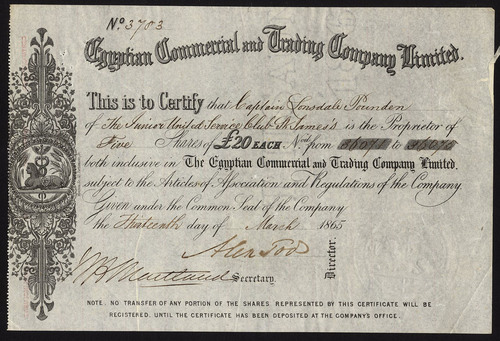 No. 3703
Egyptian Commercial and Trading Company Limited.
This is to Certify that Captain Lonsdale Pounden
of The Junior United Service Club St. James's is the Proprietor of
Five Shares of £20 EACH Nos. from to
both inclusive in The Egyptian Commercial and Trading Company Limited.
subject to the Articles of Association and Regulations of the Company
Given under the Common Seal of the Company
the Thirteenth day of March 1865
Alex Tod
Director.
Secretary.
NOTE. NO TRANSFER OF ANY PORTION OF THE SHARES REPRESENTED BY THIS CERTIFICATE WILL BE
REGISTERED, UNTIL THE CERTIFICATE HAS BEEN DEPOSITED AT THE COMPANY'S OFFICE.